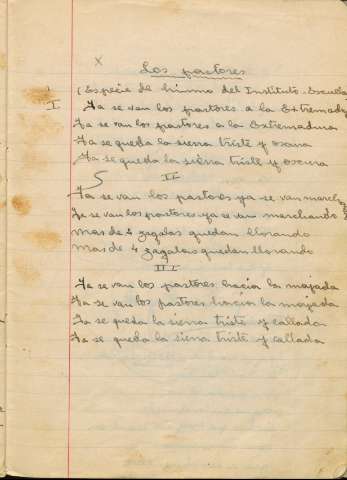 x
Los pastores
(Especie de himno del Instituto-Escuela
I Ya se van los pastores a la Extremadu
Ya se van los pastores a la Extremadura
Ya se queda la sierra triste y oscura
Ya se queda la sierra triste y oscura
II
Ya se van los pastores ya se van marchando
Ya se van los pastores ya se van marchando
mas de 4 zagalas quedan llorando
mas de 4 zagalas quedan llorando
III
Ya se van los pastores hacia la majada
Ya se van los pastores hacia la majada
Ya se queda la sierra triste y callada
Ya se queda la sierra triste y callada